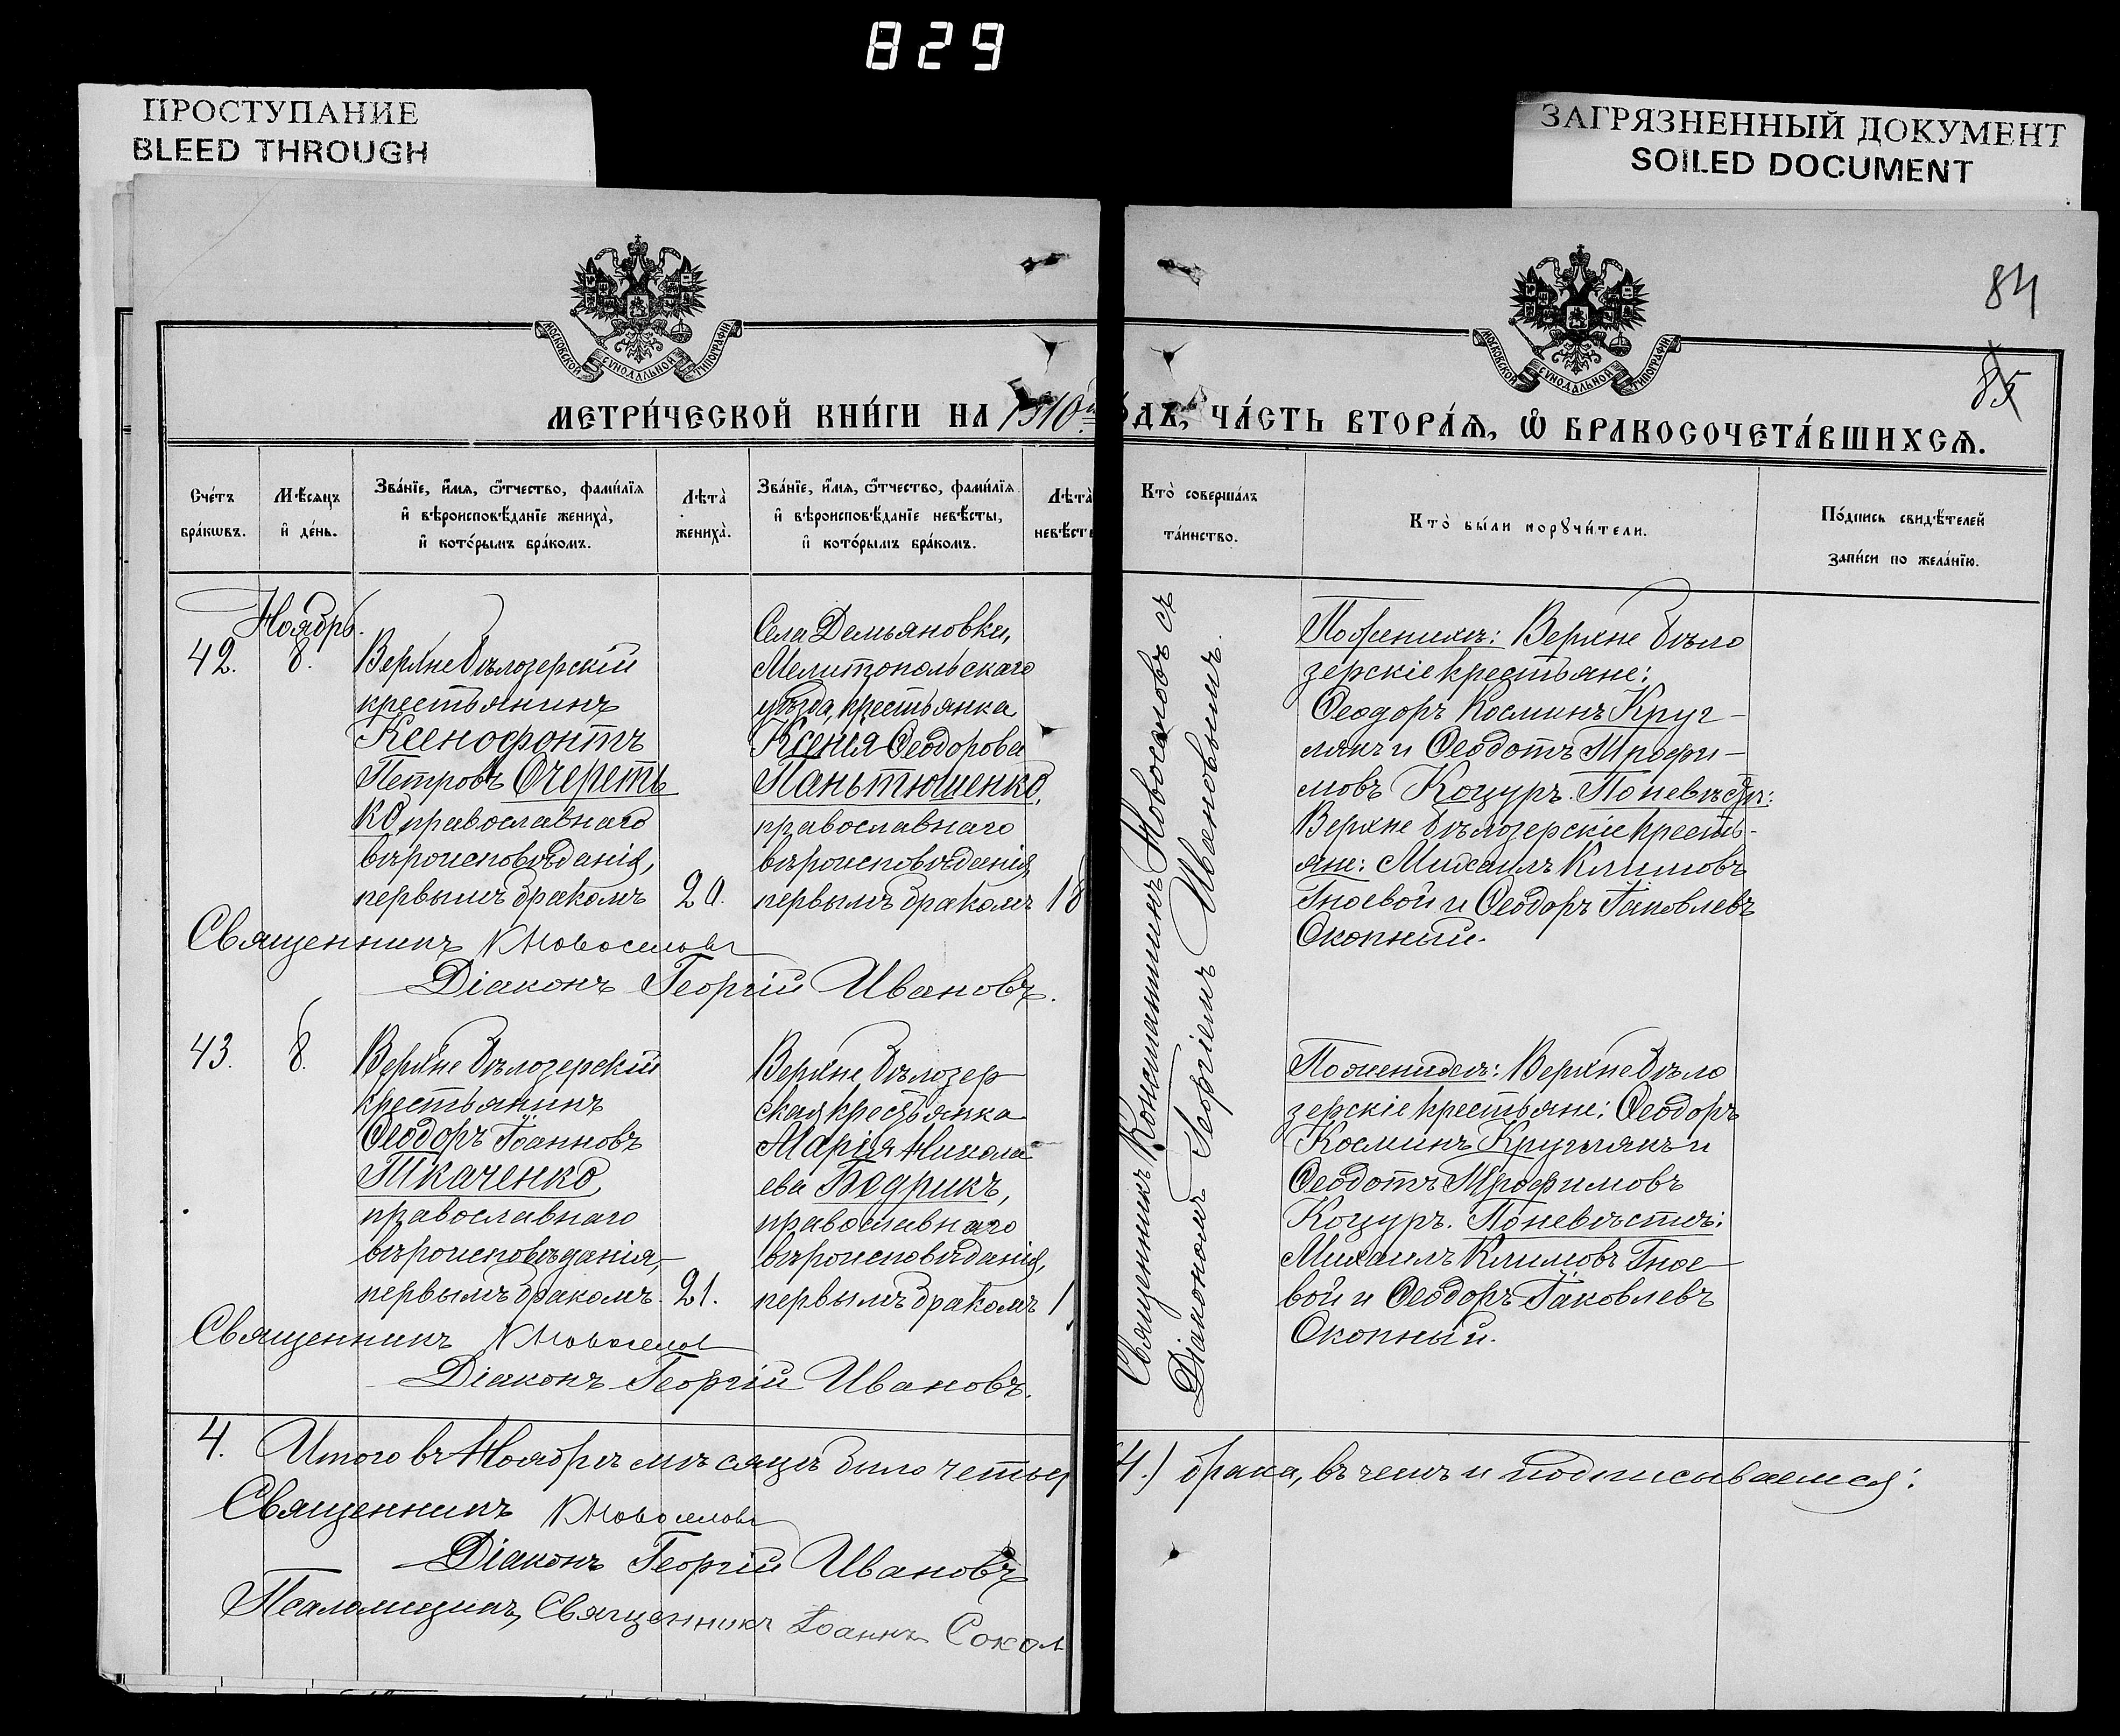 829
ПРОСТУПАНИЕ
BLEED THROUGH
ЗАГРЯЗНЕННЫЙ ДОКУМЕНТ
SOILED DOCUMENT
МОСКОВСКОЙ СѴНОДАЛЬНОЙ ТИПОГРАФІИ
МОСКОВСКОЙ СѴНОДАЛЬНОЙ ТИПОГРАФІИ
84
85
МЕТРИ́ЧЕСКОЙ КНИ́ГИ НА 1910й
О́ДЪ, ЧА́СТЬ ВТОРА́Ѧ, Ѡ҆ БРАКОСОЧЕТА́ВШИХСѦ.
Сче́тъ
бра́кѡвъ.
Мѣ́сяцъ
и҆ де́нь.
Зва́нїе, и҆́мя, ѻ҆́тчество, фами́лїя
и҆ вѣроисповѣ́данїе женихà,
и҆ кото́рымъ бра́комъ.
Лѣтà
женихà.
Зва́нїе, и҆́мя, ѻ҆́тчество, фами́лїя
и҆ вѣроисповѣ́данїе невѣ́сты,
и҆ кото́рымъ бра́комъ.
Лѣтà
невѣ́ст
Ктò соверша́лъ
та́инство.
Ктò бы́ли порꙋчи́тели.
По́дпись свидѣ́телей
за́писи по жела́нїю.
Ноябрь.
42.
8.
Верхнебѣлозерскій
крестьянинъ
Ксенофонтъ
Петровъ Очереть
ко православнаго
вѣроисповѣданія,
первымъ бракомъ
20.
Села Демьяновки,
Мелитопольскаго
уѣзда, крестьянка
Ксенія Ѳеодорова
Паньтюшенко,
православнаго
вѣроисповѣданія,
первымъ бракомъ
18
Священникъ К Новоселовъ
Діаконъ Георгій Ивановъ.
Священникъ Константинъ Новоселовъ съ
Діакономъ Георгіемъ Ивановымъ.
По женихѣ: Верхнебѣло
зерскіе крестьяне:
Ѳеодоръ Косминъ Круг-
лякъ и Ѳеодотъ Трофи-
мовъ Коцуръ. По невѣстѣ:
Верхнебѣлозерскіе кресть-
яне: Михаилъ Климовъ
Гноевой и Ѳеодоръ Іаковлевъ
Окопный.
43.
8.
Верхнебѣлозерскій
крестьянинъ
Ѳеодоръ Іоанновъ
Ткаченко,
православнаго
вѣроисповѣданія,
первымъ бракомъ.
21.
Верхнебѣлозер
ская крестьянка
Марія Никола
ева Бедрикъ,
православнаго
вѣроисповѣданія,
первымъ бракомъ
1
Священникъ К Новоселовъ
Діаконъ Георгій Ивановъ.
По женихѣ: Верхнебѣло
зерскіе крестьяне: Ѳеодоръ
Косминъ Круглякъ и
Ѳеодотъ Трофимовъ
Коцуръ. По невѣстѣ:
Михаилъ Климовъ Гное
вой и Ѳеодоръ Іаковлевъ
Окопный.
4. Итого въ Ноябрѣ мѣсяцѣ было четыр
4.) брака, въ чемъ и подписываемся:
Священникъ К Новоселовъ
Діаконъ Георгій Ивановъ
Псаломщикъ, Священникъ Іоаннъ Сокол